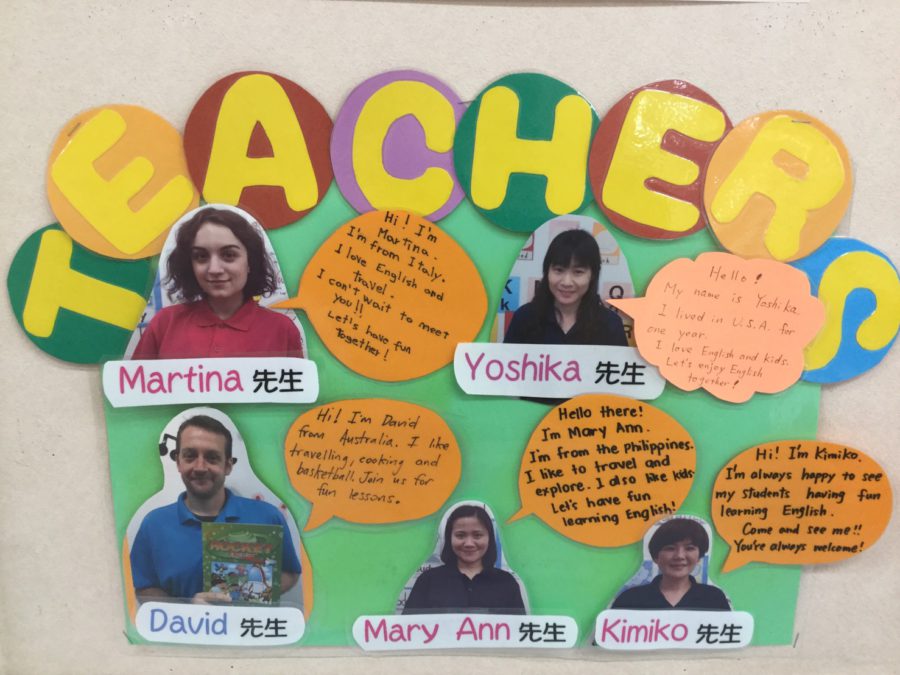 TEACHERS
Hi! I'm
Martina.
I'm from Italy.
I love English and
travel.
I can't wait to meet
you!!
Let's have fun
Together!
Martina 先生
Hello!
My name is Yoshika.
I lived in U.S.A. for
one year.
I love English and kids.
Let's enjoy English
together!
Yoshika 先生
Hi! I'm David
from Australia. I like
travelling, cooking and
basketball. Join us for
fun lessons.
David 先生
Hello there!
I'm Mary Ann.
I'm from the Philippines.
I like to travel and
explore. I also like kids.
Let's have fun
learning English!
Mary Ann 先生
Hi! I'm Kimiko.
I'm always happy to see
my students having fun
learning English.
Come and see me!!
You're always welcome!
Kimiko 先生